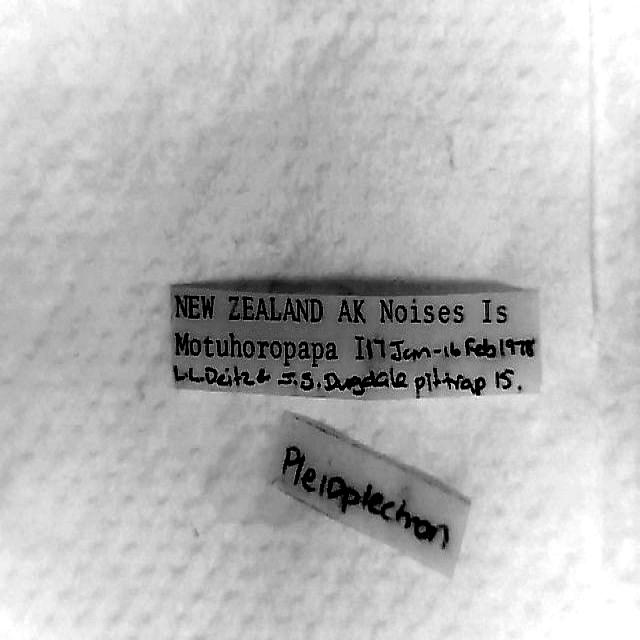 NEW ZEALAND AK Noises Is
Motuhoropapa I 17 Jan-16 Feb 1978
L.L. Deitz & J.S. Dugdale pittrap 15.
Pleioplectron